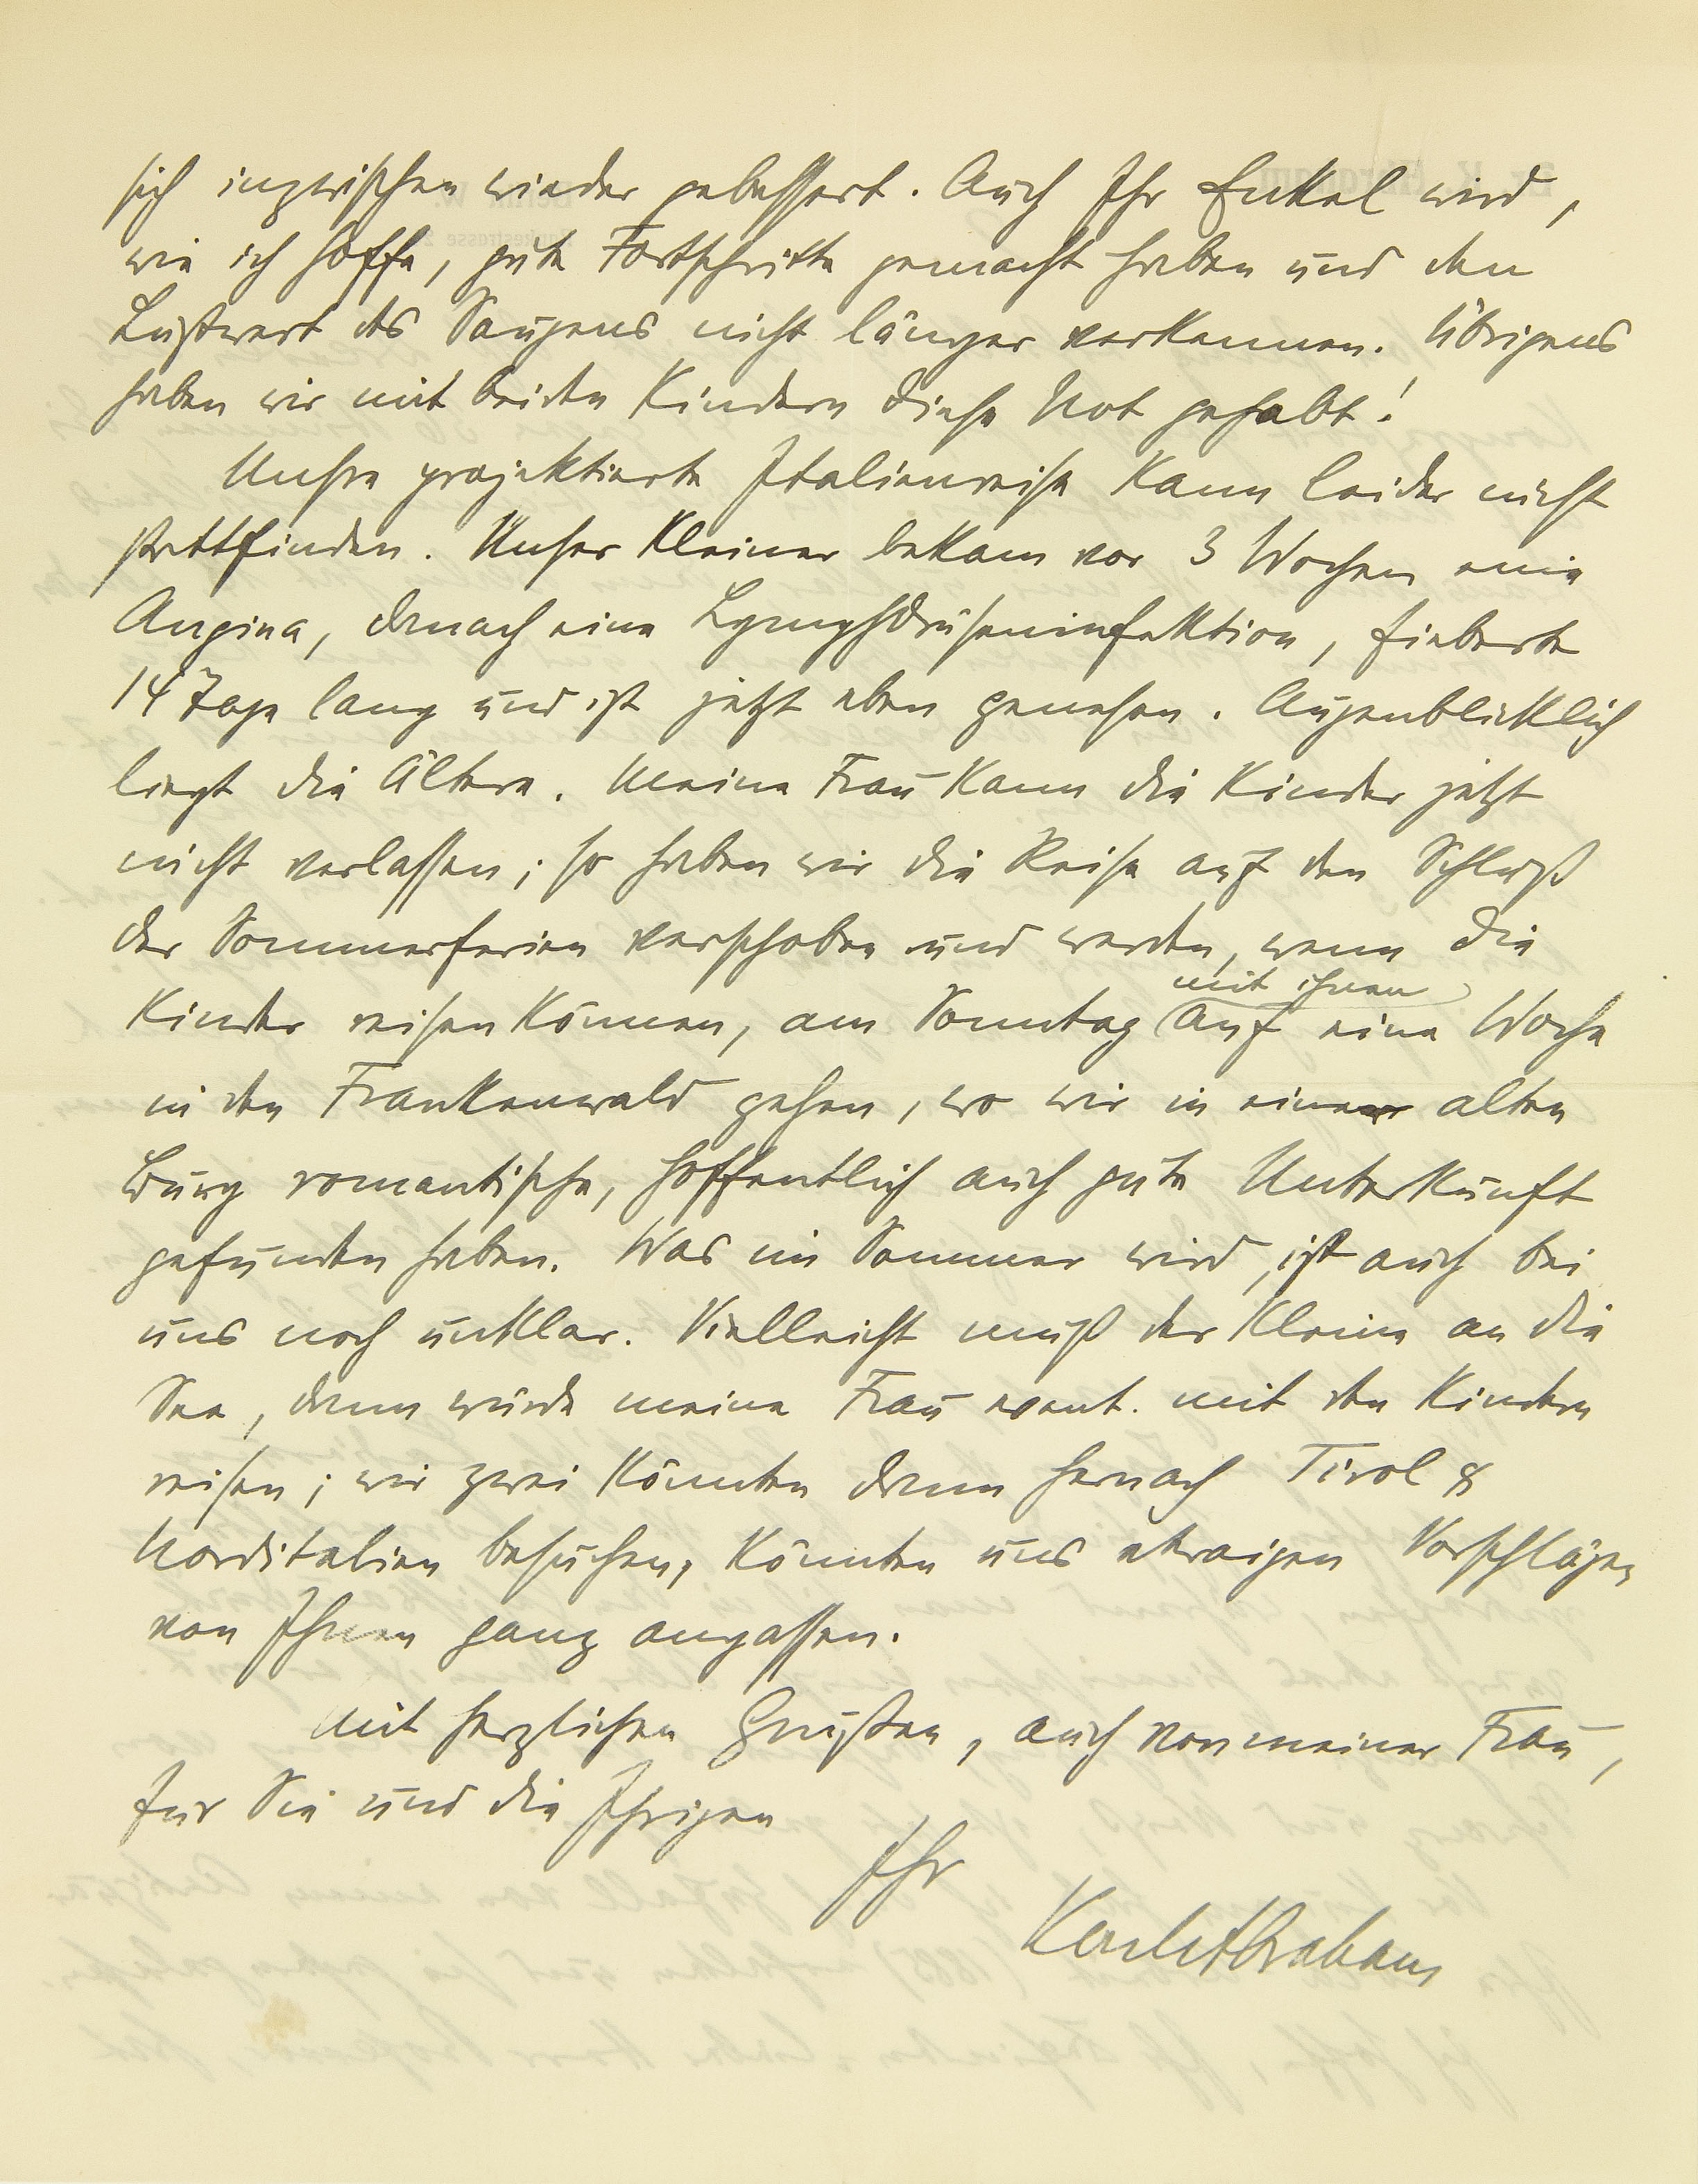 sich inzwischen wieder gebessert. Auch Ihr Enkel wird,
wie ich hoffe, gute Fortschritte gemacht haben und den
Lustwert des Saugens nicht länger verkennen. Übrigens
haben wir mit beiden Kindern diese Not gehabt!
Unsre projektierte Italienreise kann leider nicht
stattfinden. Unser Kleiner bekam vor 3 Wochen eine
Angina, danach eine Lymphdrüseninfektion, fieberte
14 Tage lang und ist jetzt eben genesen. Augenblicklich
liegt die Ältere. Meine Frau kann die Kinder jetzt
nicht verlassen; so haben wir die Reise auf den Schluß
der Sommerferien verschoben und werden, wenn die
mit ihnen
Kinder reisen können, am Sonntag auf eine Woche
in den Frankenwald gehen, wo wir in einer alten
Burg romantische, hoffentlich auch gute Unterkunft
gefunden haben. Was im Sommer wird, ist auch bei
uns noch unklar. Vielleicht muß der Kleine an die
See, dann würde meine Frau event. mit den Kindern
reisen; wir zwei könnten dann hernach Tirol &
Norditalien besuchen, könnten uns etwaigen Vorschlägen
von Ihnen ganz anpassen.
Mit herzlichen Grüßen, auch von meiner Frau,
für Sie und die Ihrigen
Ihr
Karl Abraham